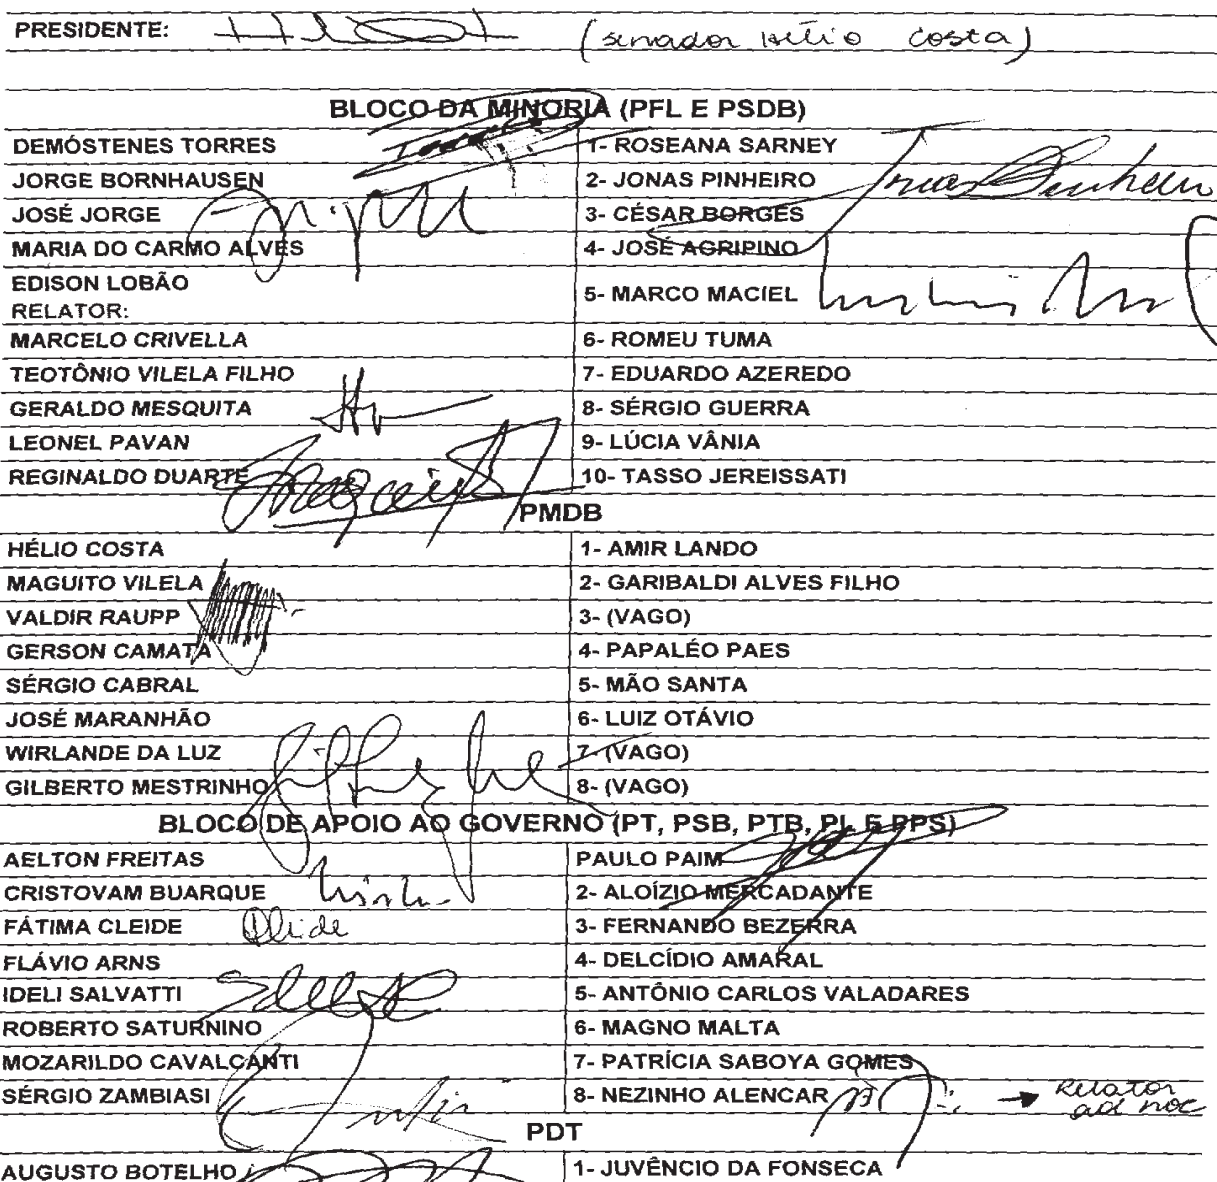 PRESIDENTE: (senador Hélio Costa)
BLOCO DA MINORIA (PFL E PSDB)
DEMÓSTENES TORRES 1- ROSEANA SARNEY
JORGE BORNHAUSEN 2- JONAS PINHEIRO
JOSÉ JORGE 3- CÉSAR BORGES
MARIA DO CARMO ALVES 4- JOSÉ AGRIPINO
EDISON LOBÃO
RELATOR: 5- MARCO MACIEL
MARCELO CRIVELLA 6- ROMEU TUMA
TEOTÔNIO VILELA FILHO 7- EDUARDO AZEREDO
GERALDO MESQUITA 8- SÉRGIO GUERRA
LEONEL PAVAN 9- LÚCIA VÂNIA
REGINALDO DUARTE 10- TASSO JEREISSATI
PMDB
HÉLIO COSTA 1- AMIR LANDO
MAGUITO VILELA 2- GARIBALDI ALVES FILHO
VALDIR RAUPP 3- (VAGO)
GERSON CAMATA 4- PAPALÉO PAES
SÉRGIO CABRAL 5- MÃO SANTA
JOSÉ MARANHÃO 6- LUIZ OTÁVIO
WIRLANDE DA LUZ 7- (VAGO)
GILBERTO MESTRINHO 8- (VAGO)
BLOCO DE APOIO AO GOVERNO (PT, PSB, PTB, PL E PPS)
AELTON FREITAS PAULO PAIM
CRISTOVAM BUARQUE 2- ALOÍZIO MERCADANTE
FÁTIMA CLEIDE Cleide 3- FERNANDO BEZERRA
FLÁVIO ARNS 4- DELCÍDIO AMARAL
IDELI SALVATTI 5- ANTÔNIO CARLOS VALADARES
ROBERTO SATURNINO 6- MAGNO MALTA
MOZARILDO CAVALCANTI 7- PATRÍCIA SABOYA GOMES
SÉRGIO ZAMBIASI 8- NEZINHO ALENCAR → Relator ad hoc
PDT
AUGUSTO BOTELHO 1- JUVÊNCIO DA FONSECA